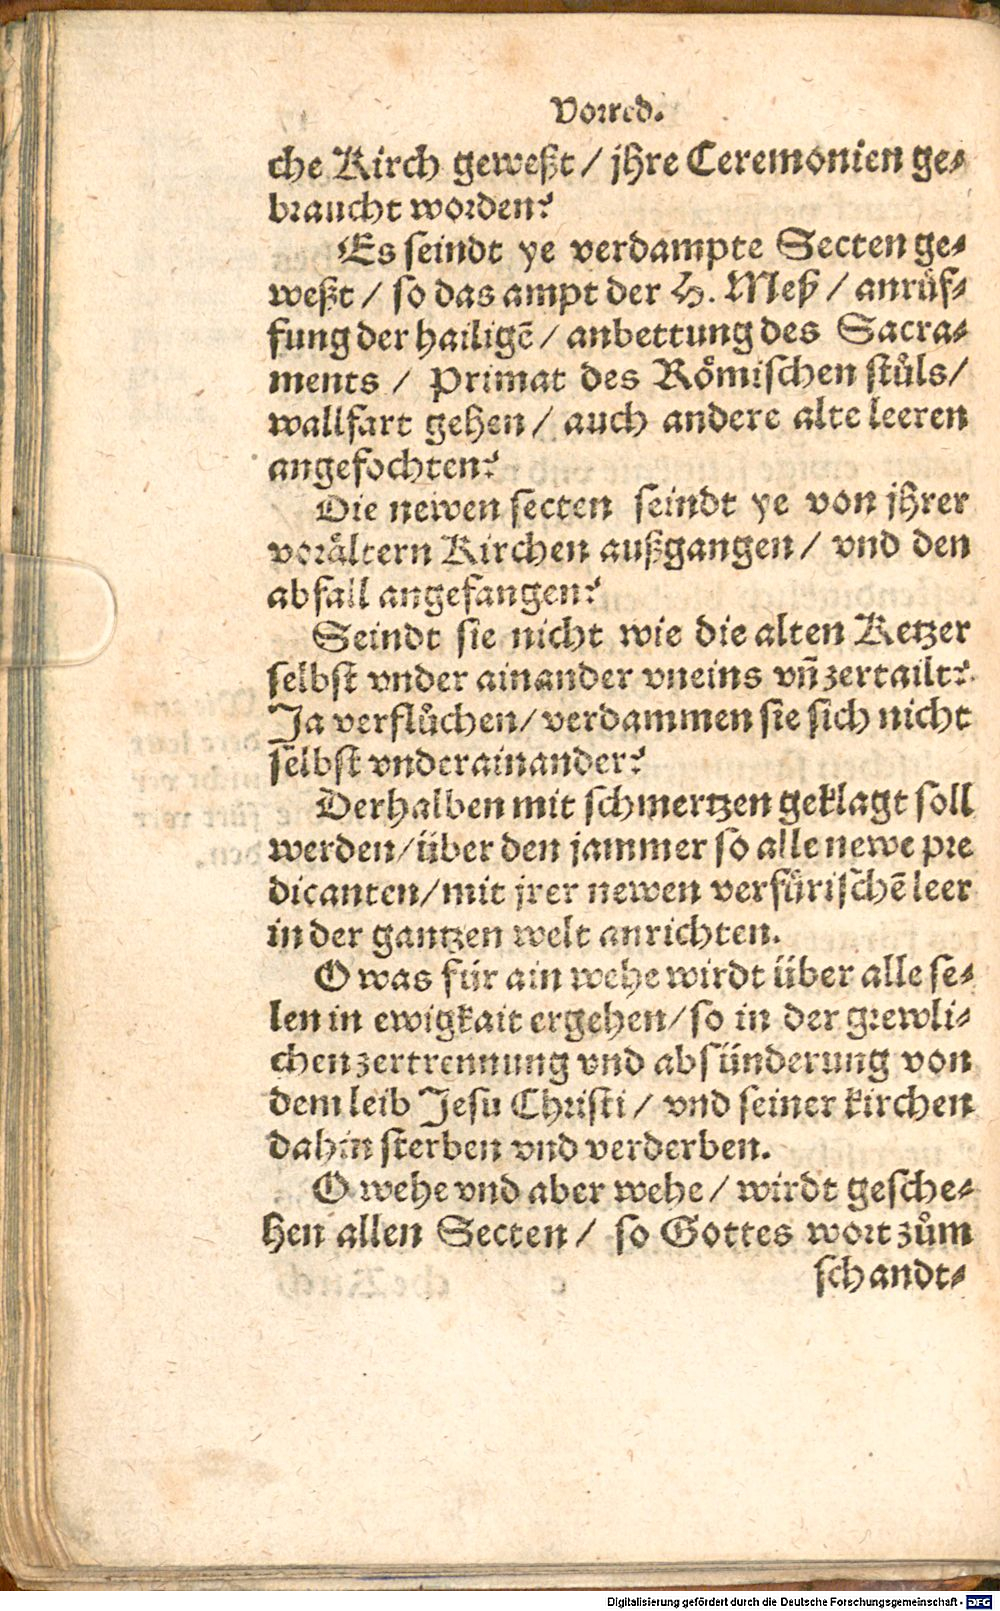 Vorred.
che Kirch geweßt / jhre Ceremonien ge-
braucht worden?
Es seindt ye verdampte Secten ge-
weßt / so das ampt der H. Meß / anrüf-
fung der hailigẽ / anbettung des Sacra-
ments / Primat des Römischen stůls /
wallfart gehen / auch andere alte leeren
angefochten?
Die newen secten seindt ye von jhrer
vorältern Kirchen außgangen / vnd den
abfall angefangen?
Seindt sie nicht wie die alten Ketzer
selbst vnder ainander vneins vñ zertailt?
Ja verflůchen / verdammen sie sich nicht
selbst vnderainander?
Derhalben mit schmertzen geklagt soll
werden / über den jammer so alle newe pre
dicanten / mit jrer newen verfürischẽ leer
in der gantzen welt anrichten.
O was für ain wehe wirdt über alle se-
len in ewigkait ergehen / so in der grewli-
chen zertrennung vnd absünderung von
dem leib Jesu Christi / vnd seiner kirchen
dahin sterben vnd verderben.
O wehe vnd aber wehe / wirdt gesche-
hen allen Secten / so Gottes wort zům
schandt-
Digitalisierung gefördert durch die Deutsche Forschungsgemeinschaft - DFG